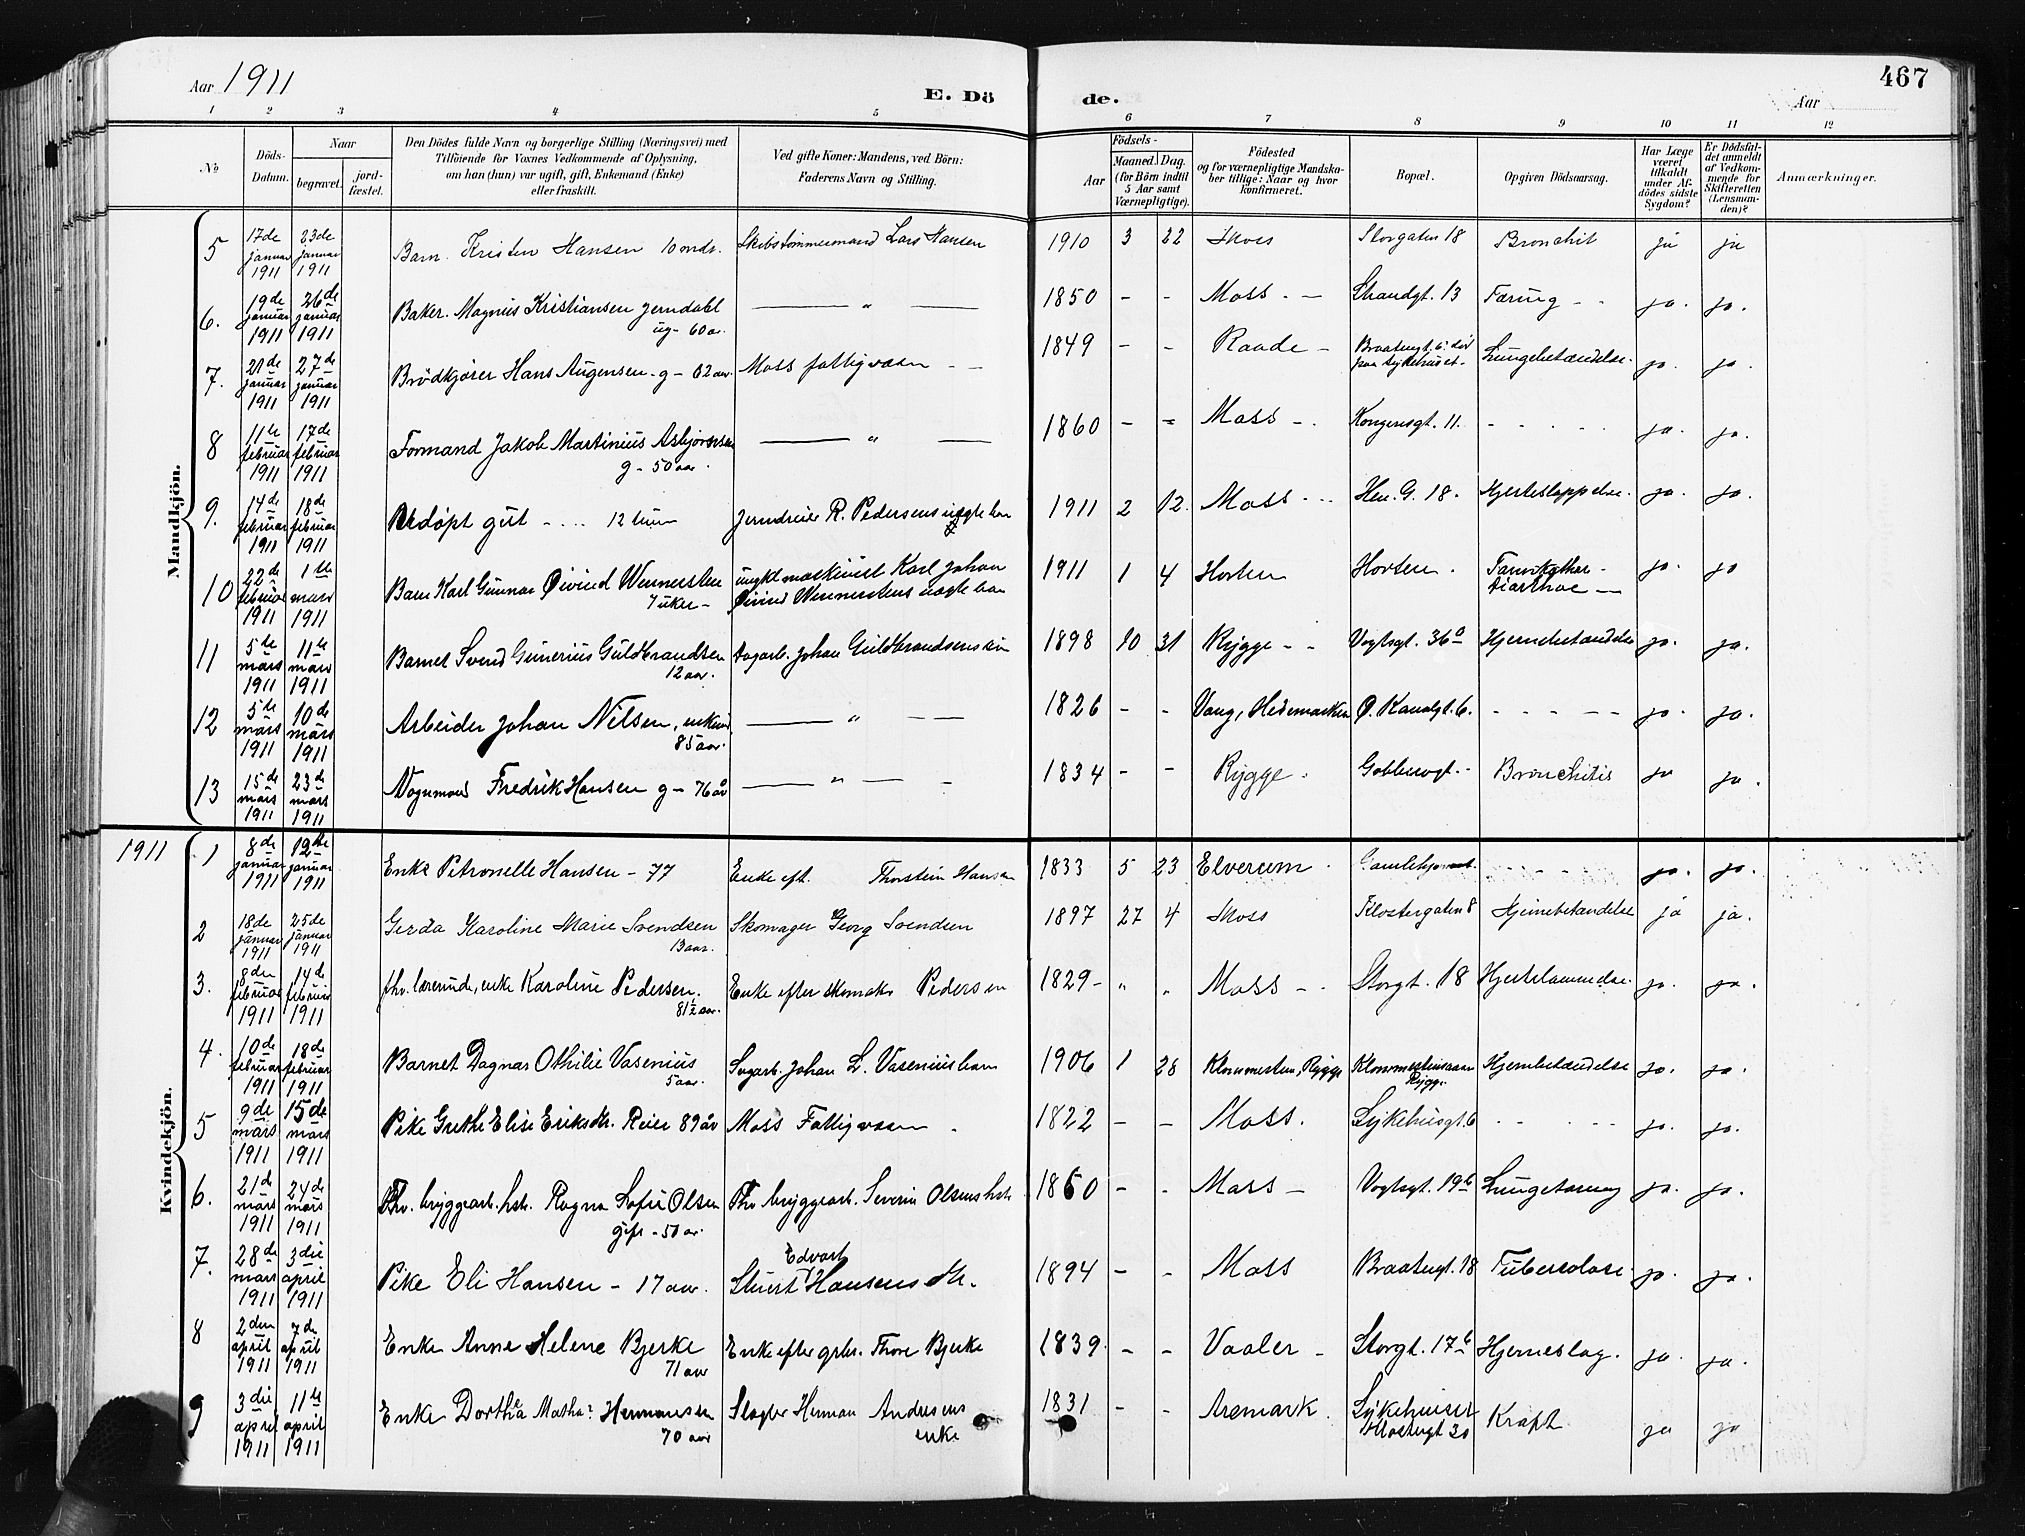 467
Aar 1911
E. Dö de.
Aar
1 2 3 4 5 6 7 8 9 10 11 12
No
Döds-
Datum.
Naar
begravet.
jord-
fæstet.
Den Dödes fulde Navn og borgerlige Stilling (Næringsvei) med
Tilföiende for Voxnes Vedkommende af Oplysning,
om han (hun) var ugift, gift, Enkemand (Enke)
eller fraskilt.
Ved gifte Koner: Mandens, ved Börn:
Faderens Navn og Stilling.
Födsels-
Aar
Maaned. Dag.
(for Börn indtil
5 Aar samt
Værnepligtige).
Födested
og for værnepligtige Mandska-
ber tillige: Naar og hvor
konfirmeret.
Bopæl.
Opgiven Dödsaarsag.
Har Læge
været
tilkaldt
under Af-
dödes sidste
Sygdom?
Er Dödsfal-
det anmeldt
af Vedkom-
mende for
Skifteretten
(Lensman-
den)?
Anmærkninger.
Mandkjön.
5 17de januar 1911 23de januar 1911 Barn Kristen Hansen 10 mdr. Skibstømmermand Lars Hansen 1910 3 22 Moss Storgaten 18 Bronchit ja ja
6. 19de januar 1911 26de januar 1911 Baker. Magnus Kristiansen Jerndahl ug - 60 aar. — " — 1850 - - Moss - Strandgt. 13 Tæring - - ja. ja.
7. 21de januar 1911 27de januar 1911 Brödkjører Hans Augensen - g - 62 aar. Moss fattigvæsen - - 1849 - - Raade - Braatengt. 6. död paa sykehuset - Lungebetændelse. ja. ja.
8 11te februar 1911 17de februar 1911 Formand Jakob Martinius Asbjørnsen g - 50 aar. — " — 1860 - - Moss - Kongensgt. 11. - - - - ja. ja.
9. 14de februar 1911 18de februar 1911 Udøpt gut - ... 12 timer Jerndreier R. Pedersens uegte barn 1911 2 12. Moss - - Hen. G. 18. Hjerteslappelse. ja. ja.
10 22de februar 1911 1ste mars 1911 Barn Karl Gunnar Øivind Wennersten 7 uker - ungkl maskinist Karl Johan Øivind Wennerstens uegte barn 1911 1 4 Horten Horten. Tarmkatharr - diarrhoe — ja. ja
11 5te mars 1911 11te mars 1911 Barnet Svend Gunerius Guldbrandsen 12 aar. Dagarb. Johan Guldbrandsens søn 1898 10 31 Rygge - - Vogtsgt. 36a Hjernebetændelse ja. ja.
12 5te mars 1911 10de mars 1911 Arbeider Johan Nilsen, enkem 85 aar. — " — — 1826 - - Vang, Hedemarken Ø. Kanalgt. 6. - - - - ja. ja.
13 15de mars 1911 23de mars 1911 Vognmand Fredrik Hansen g - 76 år — " — - 1834 - - Rygge. Gobbersgt. - Bronchitis ja ja.
1911
Kvindekjön.
1 8de januar 1911 12te januar 1911 Enke Petronelle Hansen - 77 Enke eft. Thorstein Hansen 1833 5 23 Elverum Gamlehjemmet - - - - ja. ja.
2 18de januar 1911 25de januar 1911 Gerda Karoline Marie Svendsen 13 aar. Skomager Georg Svendsen 1897 27 4 Moss Klostergaten 8 Hjernebetændelse ja ja.
3. 8den februar 1911 14de februar 1911 fhv. lærerinde, enke Karoline Pedersen. 81½ aar. Enke efter skomaker Pedersen 1829 - " " Moss - - Storgt. 18 Hjertelammelse. ja. ja.
4. 10de februar 1911 18de februar 1911 Barnet Dagnar Othilie Vasenius 5 aar. Sagarb. Johan L. Vasenius barn 1906 1 28 Klommesten, Rygge Klommestensaasen Rygge Hjernebetændelse ja. ja.
5 9de mars 1911 15de mars 1911 Pike Grethe Elise Eriksdtr. Reier 89 år Moss Fattigvæsen - 1822 - - Moss. Sykehusgt. 6 - - - - ja. ja.
6. 21de mars 1911 24de mars 1911 Fhv. bryggearb. hstr. Ragna Sofie Olsen gift - 50 år. Fhv. bryggearb. Severin Olsens hstr. 1860 - - Moss - Vogtsgt. 19b Lungetæring ja. ja.
7. 28de mars 1911 3die april 1911 Pike Eli Hansen - 17 aar. Stuert Edvart Hansens dtr. 1894 - - Moss Braatengt. 18 Tuberculose. ja. ja.
8 2den april 1911 7de april 1911 Enke Anne Helene Bjerke 71 aar Enke efter grbr. Thore Bjerke 1839 - - Vaaler - Storgt. 17b Hjerneslag. ja. ja.
9 3die april 1911 11te april 1911 Enke Dorthea Matha? Hermansen 70 aar Slagter Herman Andersens enke 1831 - - Aremark. Sykehuset Klostergt 30 Kræft ja ja